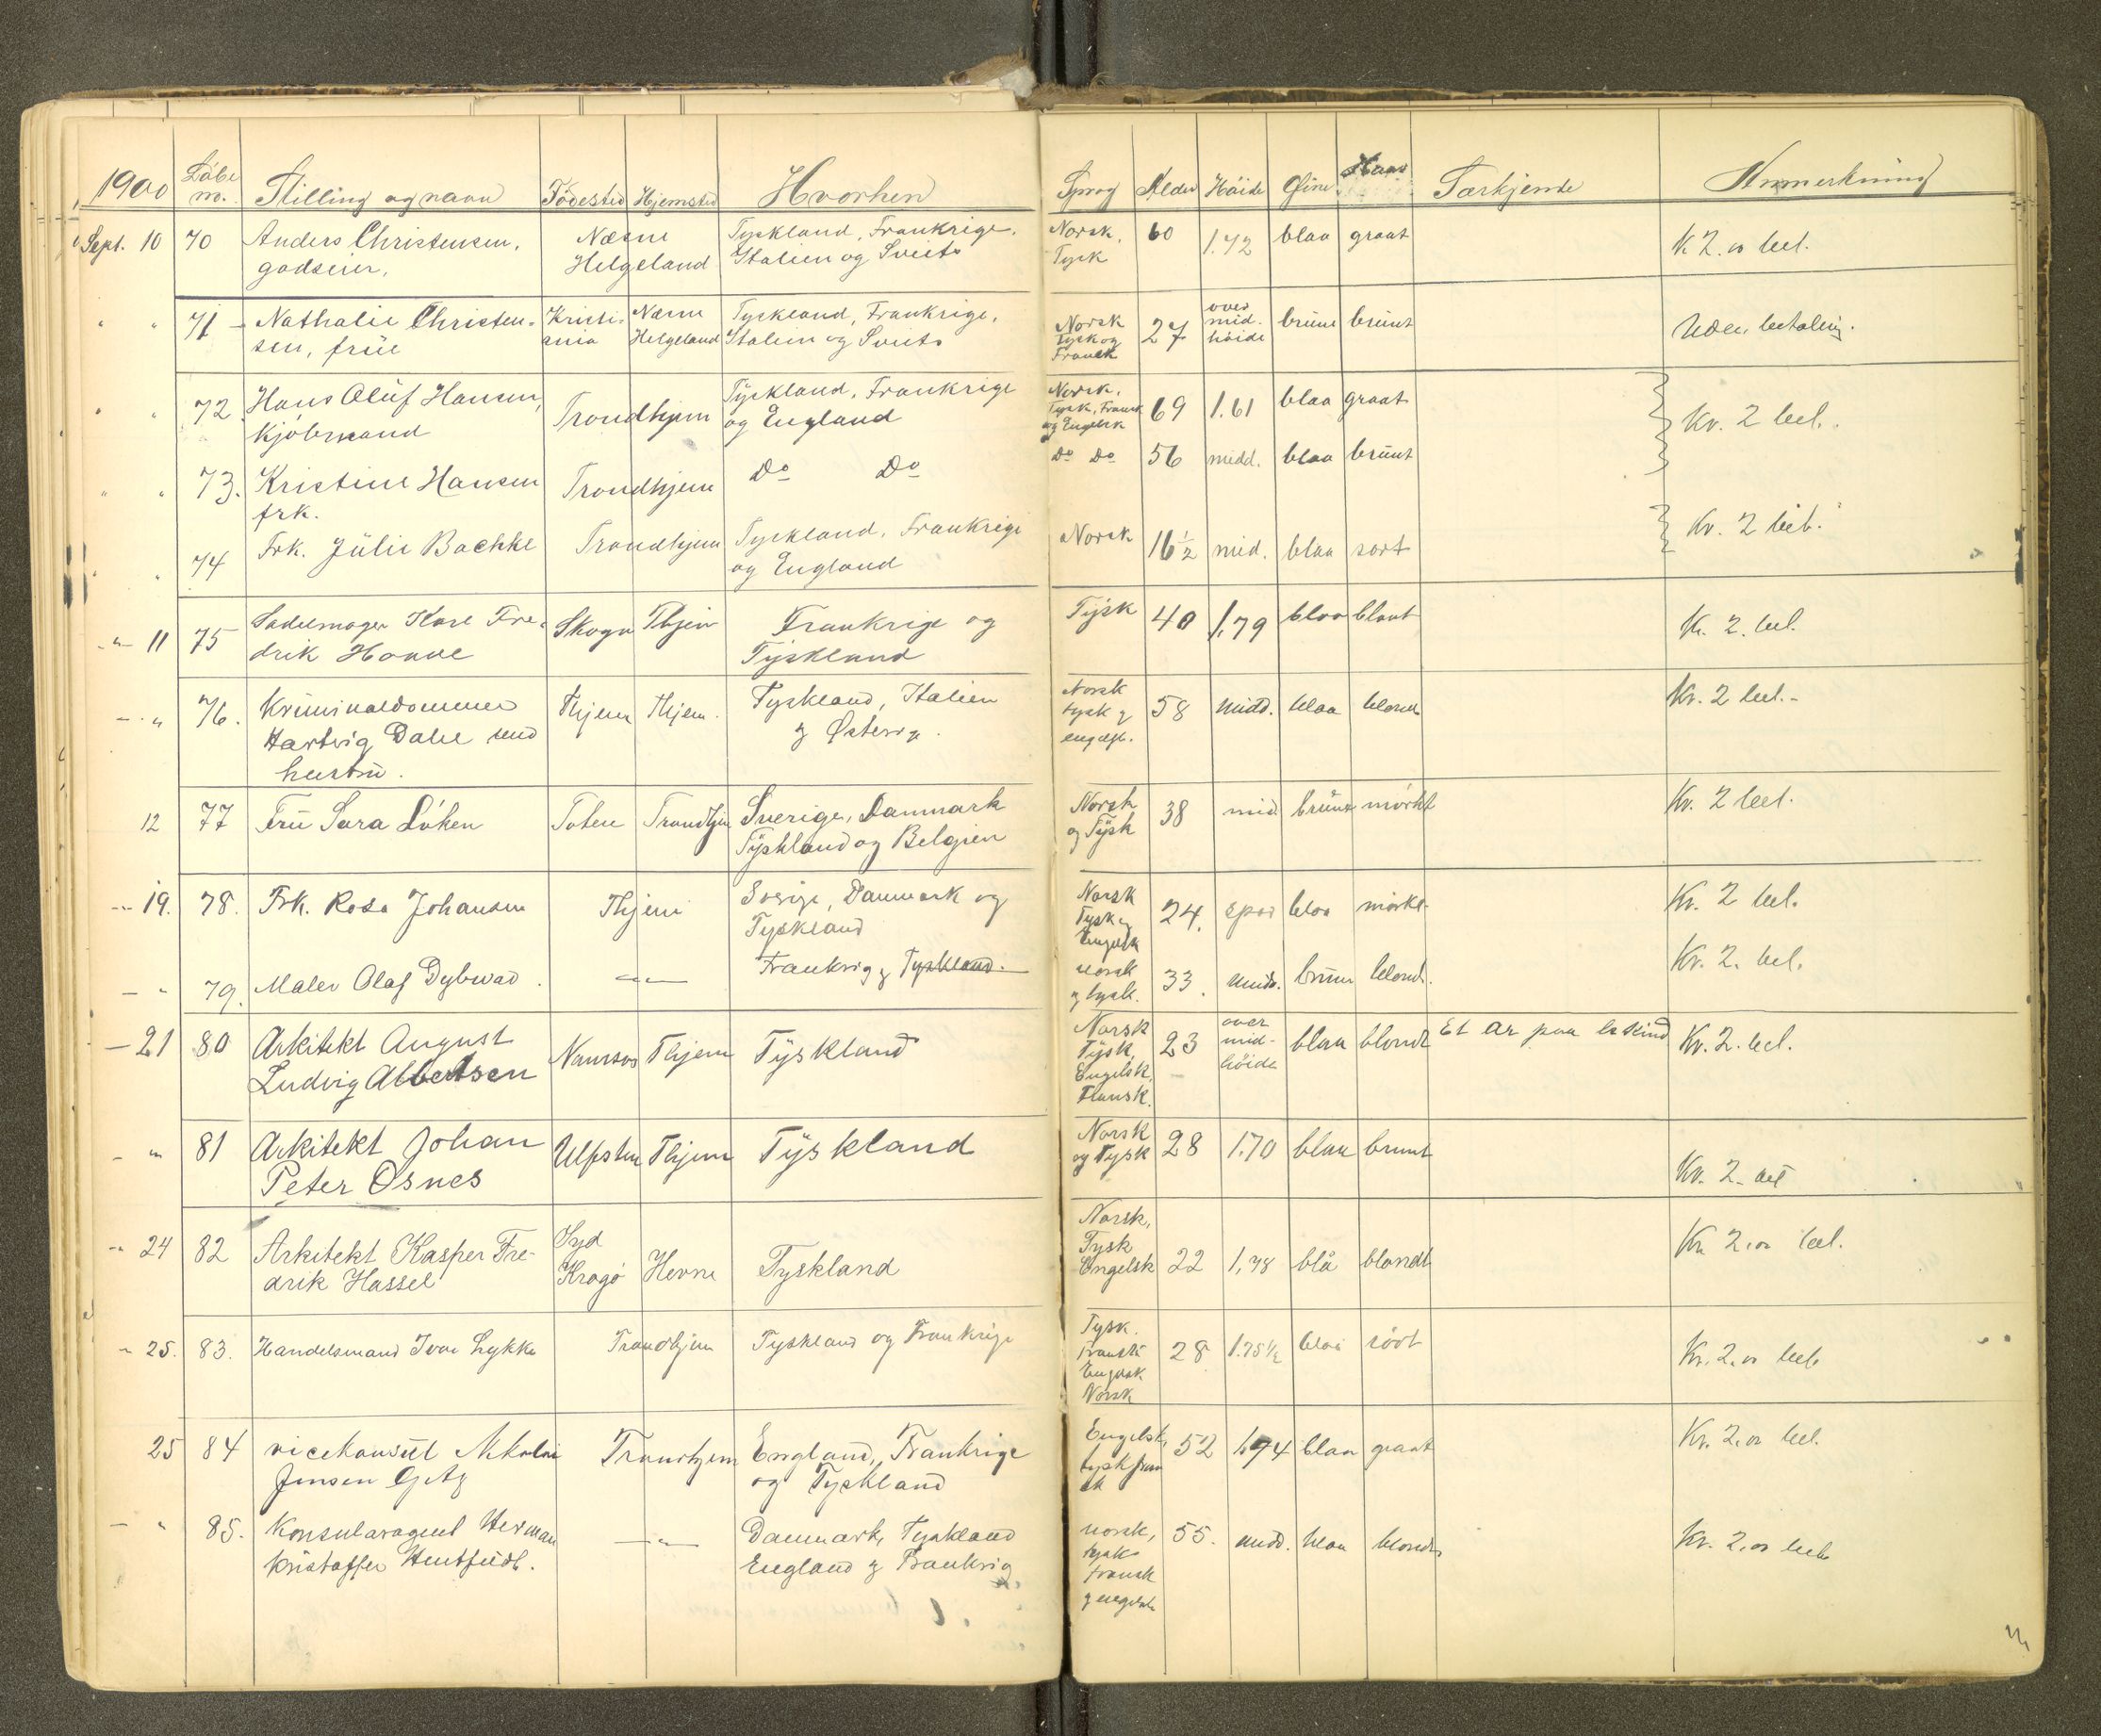 1900 Löbe no. Stilling og navn Födested Hjemsted Hvorhen Sprog Alder Höide Öine Haar Særkjende Anmerkning
Sept. 10 70 Anders Christensen, Næsne Tyskland, Frankrige, Norsk, 60 1.72 blaa graat K 2.00 bet.
godseier, Helgeland Italien og Sveits Tysk
" " 71 Nathalie Christen- Kristi- Næsne Tyskland, Frankrige, Norsk 27 over mid- höide brüne brünt Uden betaling.
sen, früe ania Helgeland Italien og Sveits tysk og
Fransk
" " 72 Hans Olüf Hansen, Trondhjem Tyskland, Frankrige Norsk, 69 1.61 blaa graat Kr. 2 bet.
Kjöbmand og England Tysk, Fransk
og Engelsk
" " 73. Kristine Hansen Trondhjem Do Do Do Do 56 midd. blaa brünt
frk.
" " 74 Frk. Jülie Bachke Trondhjem Tyskland, Frankrige Norsk 16½ mid. blaa sort Kr. 2 bet.
og England
" 11 75 Sadelmager Karl Fre- Skogn Thjem Frankrige og Tysk 40 1.79 blaa blont Kr. 2. bet.
drik Tyskland
" " 76. Kriminaldommer Thjem Thjem. Tyskland, Italien Norsk 58 midd. blaa blond Kr. 2 bet.-
Hartvig Dahl med & Østerrig. tysk &
hustru. engelsk.
12 77 Frü Sara Löken Toten Trondhjem Sverige, Danmark Norsk 38 mid brünt mörkt Kr. 2 bet.
Tyskland og Belgien og Tysk
" 19. 78. Frk. Rosa Johansen Thjem Sverige, Danmark og Norsk 24. blaa mörkt Kr. 2 bet.
Tyskland Tysk &
Engelsk
" " 79. Maler Olaf Dybwad. " Frankrig & Tyskland. norsk 33. midd. brüne blond. Kr. 2. bet.
& tysk.
- 21 80 Arkitekt August Namsos Thjem Tyskland Norsk 23 over mid- höide blaa blondt Et ar paa Kr. 2. bet.
Ludvig Albertsen Tysk,
Engelsk,
Fransk.
- " 81 Arkitekt Johan Ulfsten Thjem Tyskland Norsk 28 1.70 blaa brunt Kr. 2- bet
Peter Osnes og Tysk
" 24 82 Arkitekt Kasper Fre- Syd Hevne Tyskland Norsk, 22 1,78 blå blondt Kr 2,00 bet.
drik Hassel Kragö Tysk
Engelsk
" 25. 83. Handelsmand Ivar Lykke Trondhjem Tyskland og Frankrige Tysk. 28 1.75½ blaa sort Kr. 2.00 bet
Fransk
Engelsk
Norsk
25 84 vicekonsül Nikolai Trondhjem England, Frankrige Engelsk, 52 1.74 blaa graat Kr. 2.00 bet.
Jensen og Tyskland tysk fran
sk
- " 85. Konsularagent Herman " Danmark, Tyskland norsk, 55. midd. blaa blondt Kr. 2.00 bet
Kristoffer Huitfeldt. England & Frankrig tysk
fransk
& engelsk